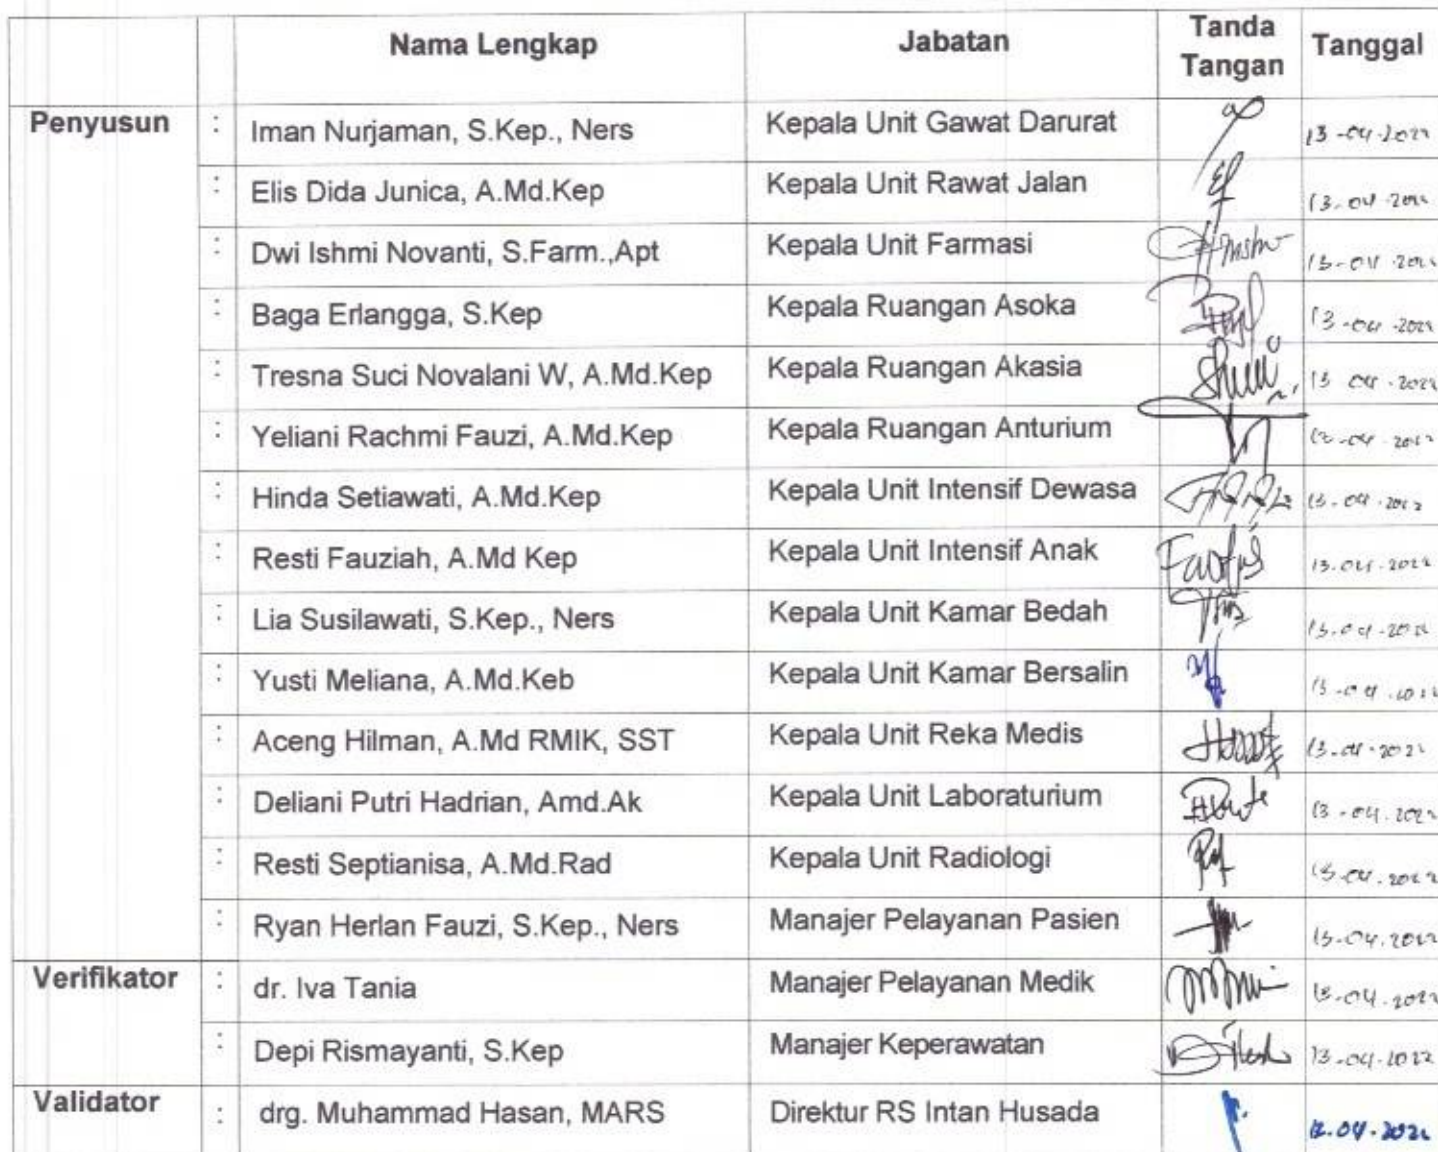 Nama Lengkap Jabatan Tanda Tangan Tanggal
Penyusun : Iman Nurjaman, S.Kep., Ners Kepala Unit Gawat Darurat 13-04-2022
: Elis Dida Junica, A.Md.Kep Kepala Unit Rawat Jalan 13-04-2022
: Dwi Ishmi Novanti, S.Farm.,Apt Kepala Unit Farmasi 13-04-2022
: Baga Erlangga, S.Kep Kepala Ruangan Asoka 13-04-2022
: Tresna Suci Novalani W, A.Md.Kep Kepala Ruangan Akasia 13 04-2022
: Yeliani Rachmi Fauzi, A.Md.Kep Kepala Ruangan Anturium 13-04-2022
: Hinda Setiawati, A.Md.Kep Kepala Unit Intensif Dewasa 13-04-2022
: Resti Fauziah, A.Md Kep Kepala Unit Intensif Anak 13-04-2022
: Lia Susilawati, S.Kep., Ners Kepala Unit Kamar Bedah 13-04-2022
: Yusti Meliana, A.Md.Keb Kepala Unit Kamar Bersalin 13-04-2022
: Aceng Hilman, A.Md RMIK, SST Kepala Unit Reka Medis 13-04-2022
: Deliani Putri Hadrian, Amd.Ak Kepala Unit Laboraturium 13-04-2022
: Resti Septianisa, A.Md.Rad Kepala Unit Radiologi 13-04-2022
: Ryan Herlan Fauzi, S.Kep., Ners Manajer Pelayanan Pasien 13-04-2022
Verifikator : dr. Iva Tania Manajer Pelayanan Medik 13-04-2022
: Depi Rismayanti, S.Kep Manajer Keperawatan 13-04-2022
Validator : drg. Muhammad Hasan, MARS Direktur RS Intan Husada